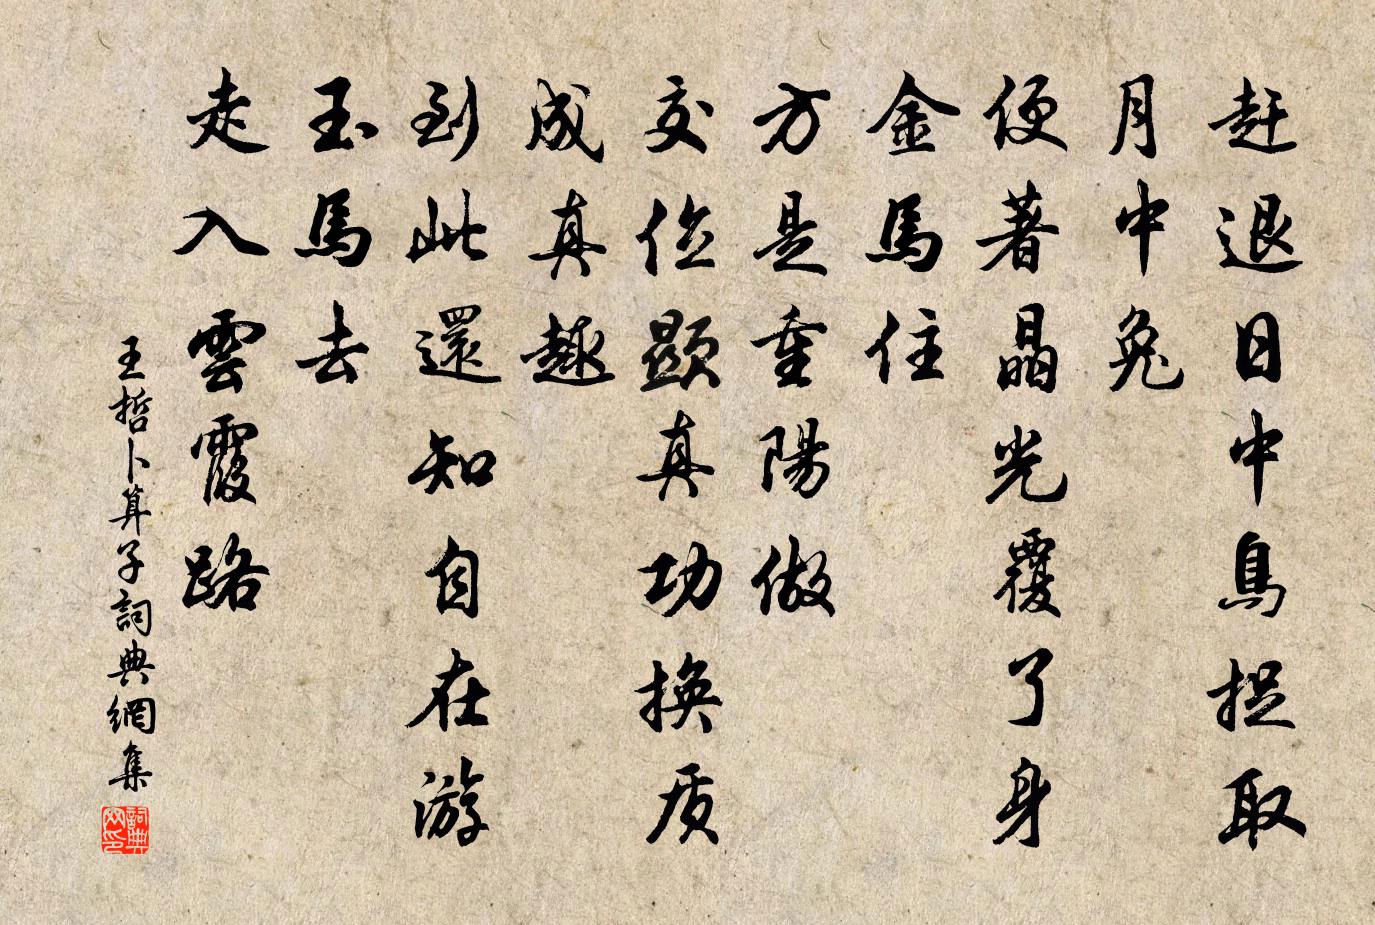 赶退日中烏捉取
月中兔
便著晶光覆了身
金馬住
方是重陽做
交位顯真功換质
成真趣
到此還知自在游
玉馬去
走入雲霞路
王哲卜算子詞典網集
詞典网印